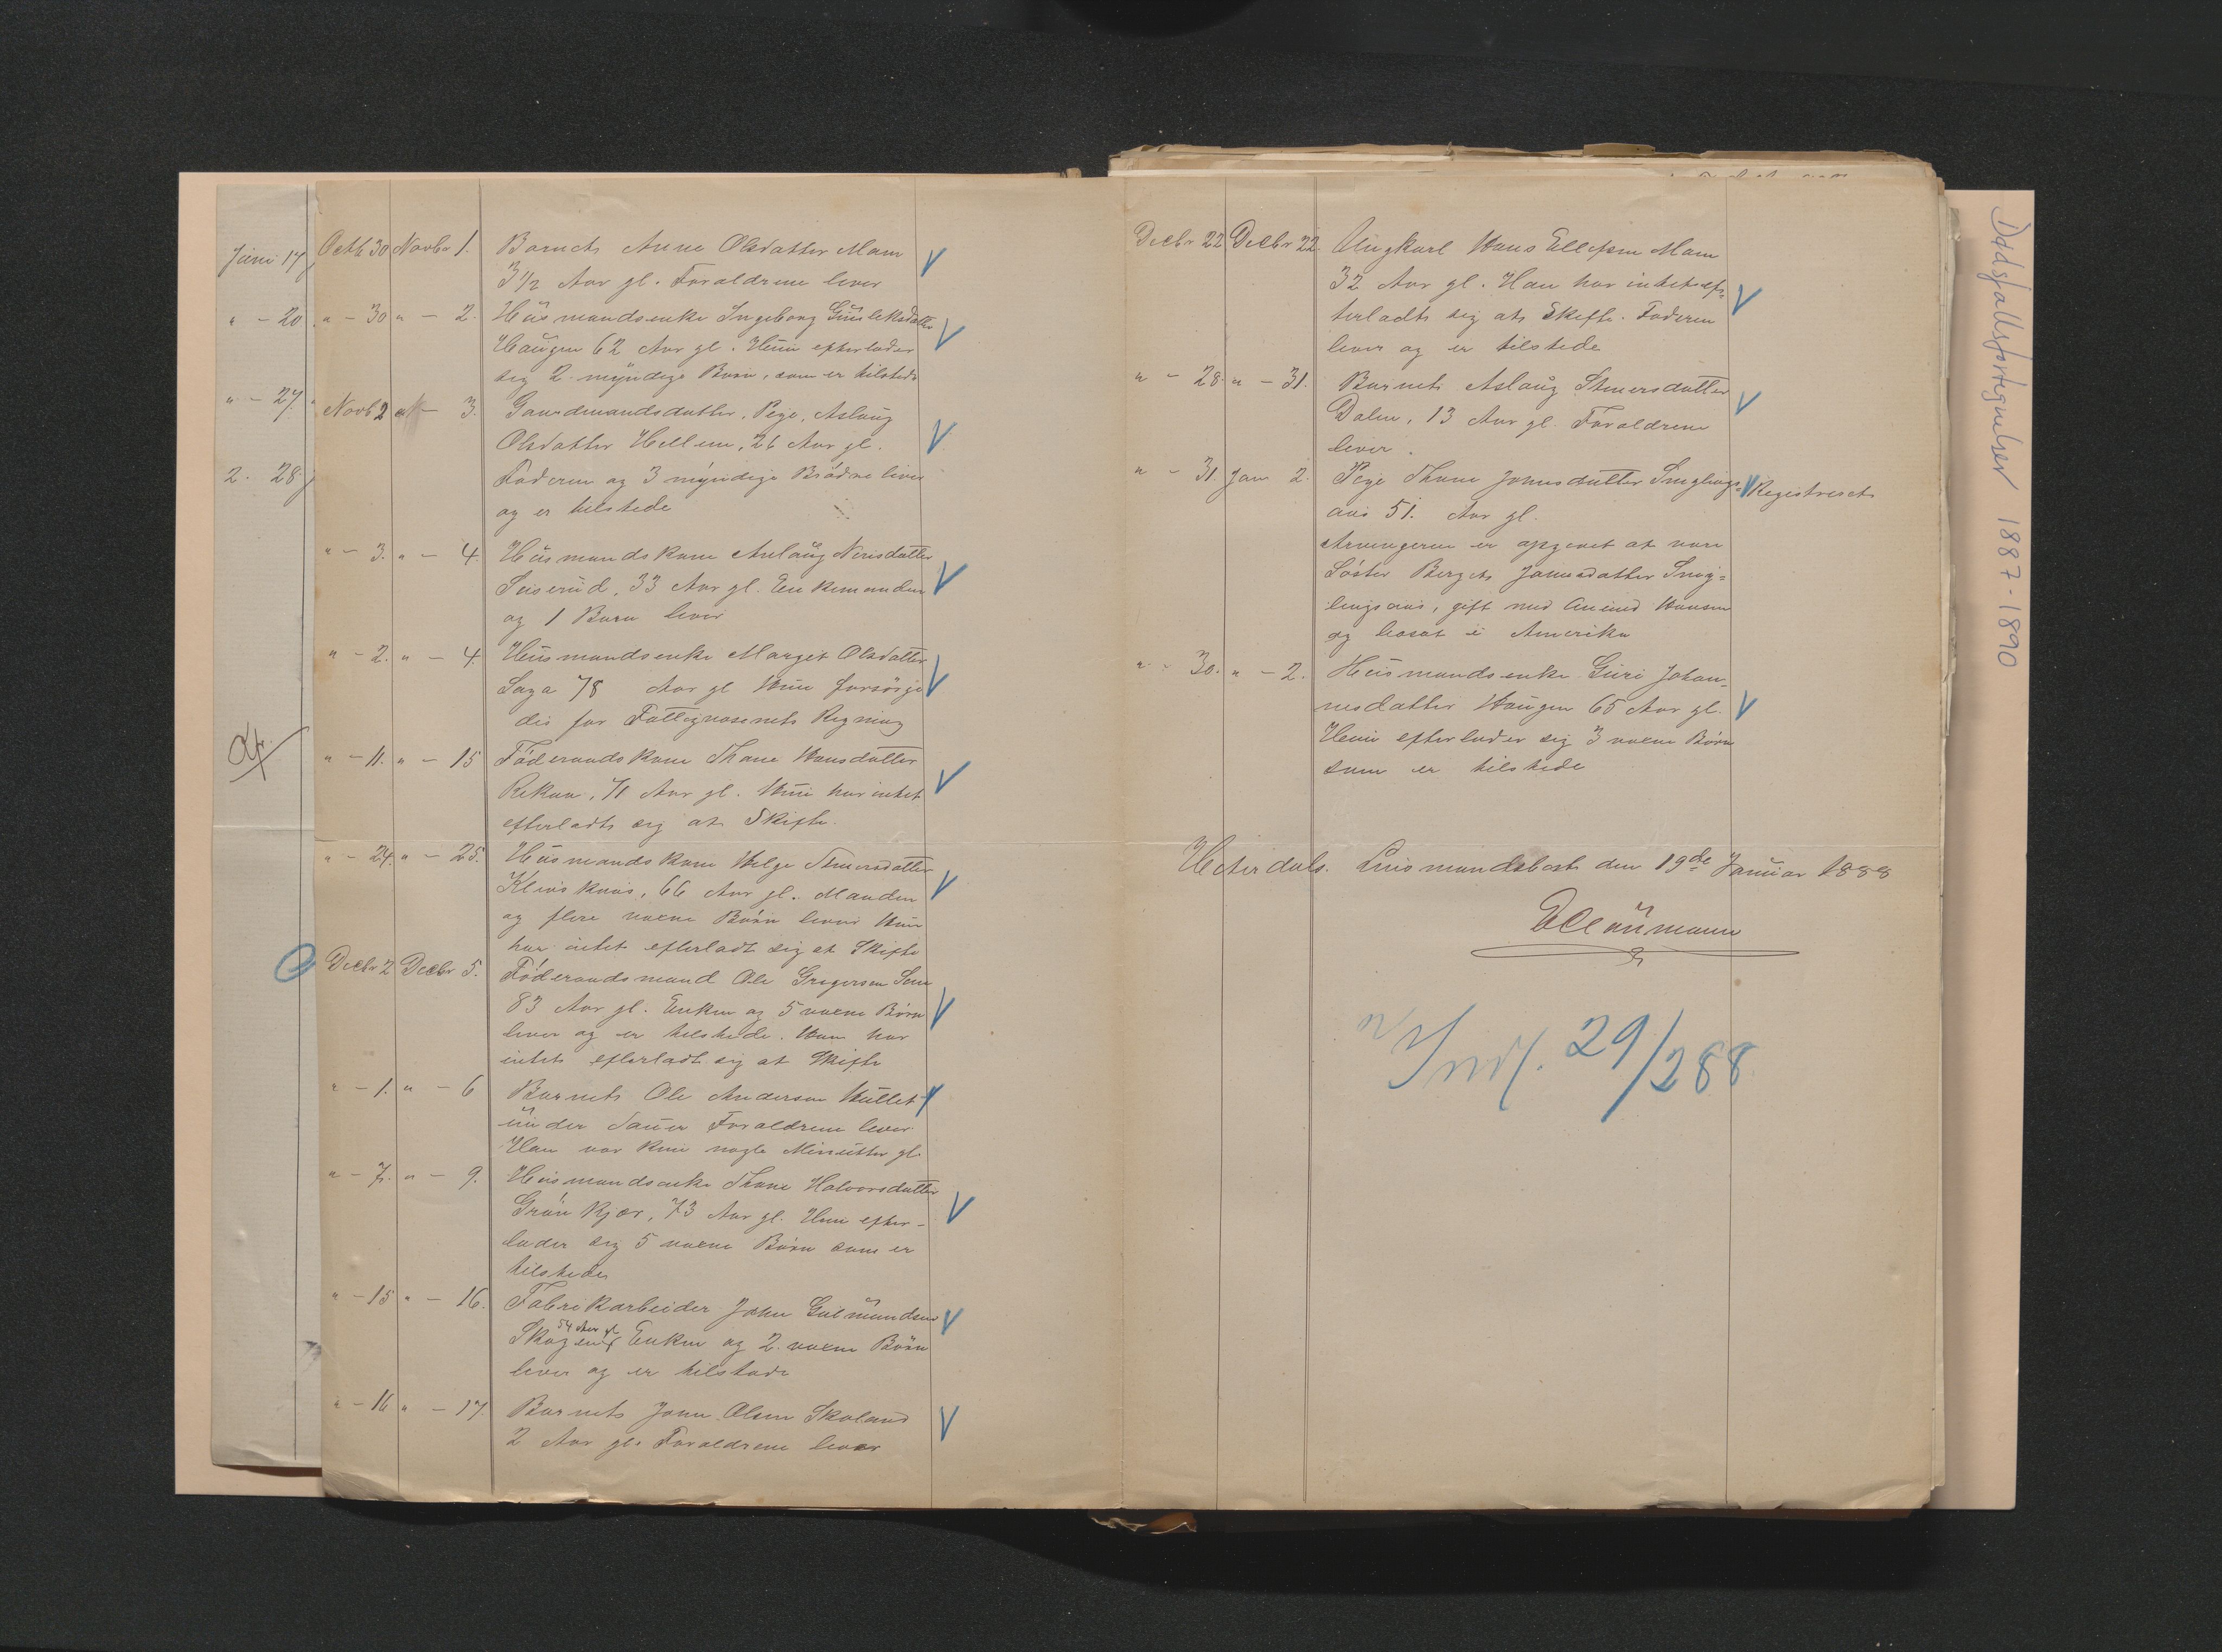 Juni 14
" - 20.
" - 27.
2. 28.
Octb 30 Novbr 1. Barnet Anne Olsdatter Moen
3 1/2 Aar gl. Forældrene lever
" - 30 " - 2. Husmandsenke Ingeborg Gunleksdatter
Haugen 62 Aar gl. Hun efterlader
sig 2 myndige Børn, som er tilstede
Novb 2 " - 3. Gaardmandsdatter, Pige, Aslaug
Olsdatter Hellem, 26 Aar gl.
Faderen og 3 myndige Brødre lever
og er tilstede
" - 3. " - 4. Husmandskone Anlaug Nerisdatter
33 Aar gl. Enkemanden
og 1 Barn lever
" - 2. " - 4. Husmandsenke Margit Olsdatter
Saga 78 Aar gl Hun forsørge
des for Fattigvæsenets Regning
" - 11. " - 15 Føderaadskone Thone Hansdatter
Rekaa, 71 Aar gl. Hun har intet
efterladt sig at Skifte.
" - 24. " - 25. Husmandskone Helge Steinersdatter
66 Aar gl. Manden
og flere voxne Børn lever Hun
har intet efterladt sig at Skifte
Decbr 2 Decbr 5. Føderaadsmand Ole Gregersen Sem
83 Aar gl. Enken og 5 voxne Børn
lever og er tilstede. Han har
intet efterladt sig at Skifte
" - 1. " - 6 Barnet Ole Anderson Hullet
under Sauer Forældrene lever
Han var kun nogle Minutter gl.
" - 7. " - 9. Husmandsenke Thone Halvorsdatter
Grönkjær, 73 Aar gl. Hun efter-
lader sig 5 voxne Børn som er
tilstede
" - 15 " - 16. Fabrikarbeider John Gulmundsen
54 Aar gl
Skogen Enken og 2 voxne Börn
lever og er tilstede
" - 16 " - 17. Barnet John Olsen Skoland
2 Aar gl. Forældrene lever
Decbr 22 Decbr 22. Ungkarl Hans Ellefsen Moen
32 Aar gl. Han har intet ef-
terladt sig at Skifte. Faderen
lever og er tilstede
" - 28. " - 31. Barnet Aslaug Steinersdatter
Dalen, 13 Aar gl. Forældrene
lever.
" - 31 Jan 2. Pige Thone Jonnsdatter Smylings- Registreret
aas 51. Aar gl.
Arvingerne er opgivet at være
Søster Berget Jonnsdatter Smy-
lingsaas, gift med Hansen
og bosat i Amerika
" - 30. " - 2. Husmandsenke Guri Johan-
nesdatter Haugen 65 Aar gl.
Hun efterlader sig 3 voxne Børn
som er tilstede
Hiterdals Lensmandsbest. den 19de Januar 1888
Indf. 29/2 88
Dødsfallsfortegnelser 1887-1890